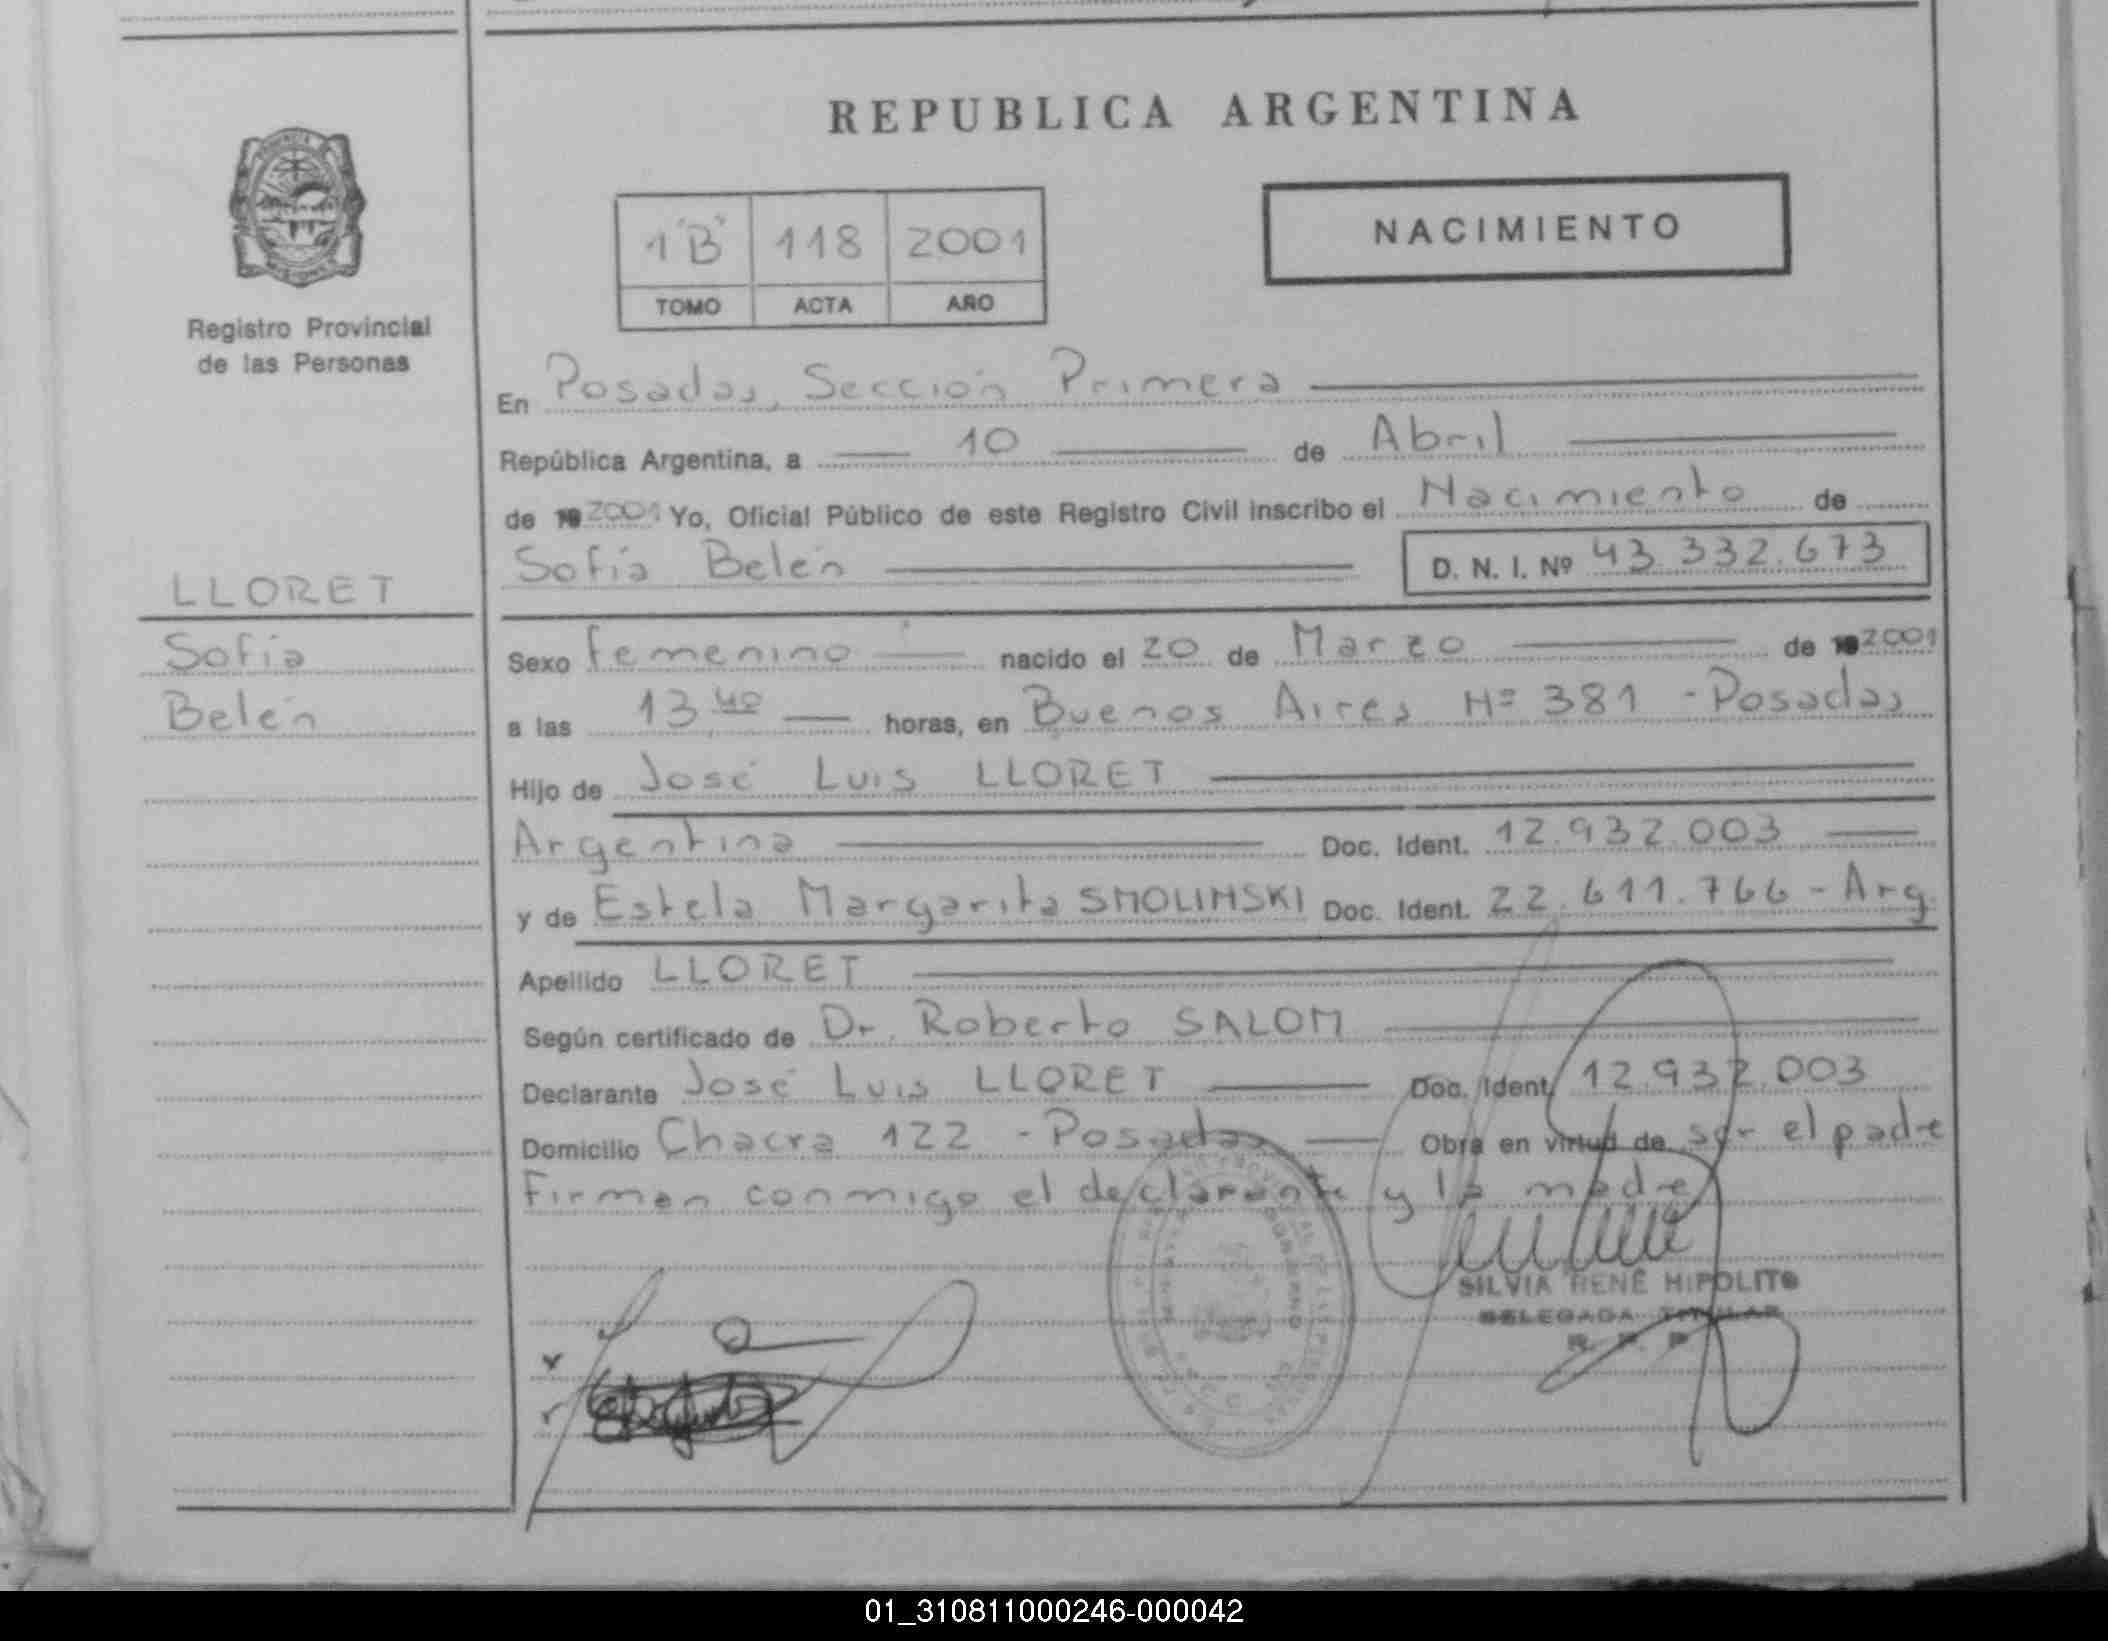 REPUBLICA ARGENTINA
1 "B" 118 2001
TOMO ACTA AÑO
NACIMIENTO
Registro Provincial
de las Personas
En Posadas, Sección Primera
República Argentina, a 10 de Abril
de 19 2001 Yo, Oficial Público de este Registro Civil inscribo el Nacimiento de
Sofía Belén D. N. I. Nº 43.332.673
LLORET
Sofía
Belén
Sexo femenino nacido el 20 de Marzo de 19 2001
a las 13 40 horas, en Buenos Aires Nº 381 - Posadas
Hijo de José Luis LLORET
Argentina Doc. Ident. 12.932.003
y de Estela Margarita SMOLINSKI Doc. Ident. 22.611.766 - Arg.
Apellido LLORET
Según certificado de Dr. Roberto SALOM
Declarante José Luis LLORET Doc. Ident. 12.932.003
Domicilio Chacra 122 - Posadas Obra en virtud de ser el padre
Firman conmigo el declarante y la madre
SILVIA RENÉ HIPOLITO
DELEGADA TITULAR
R. P. P.
01_310811000246-000042